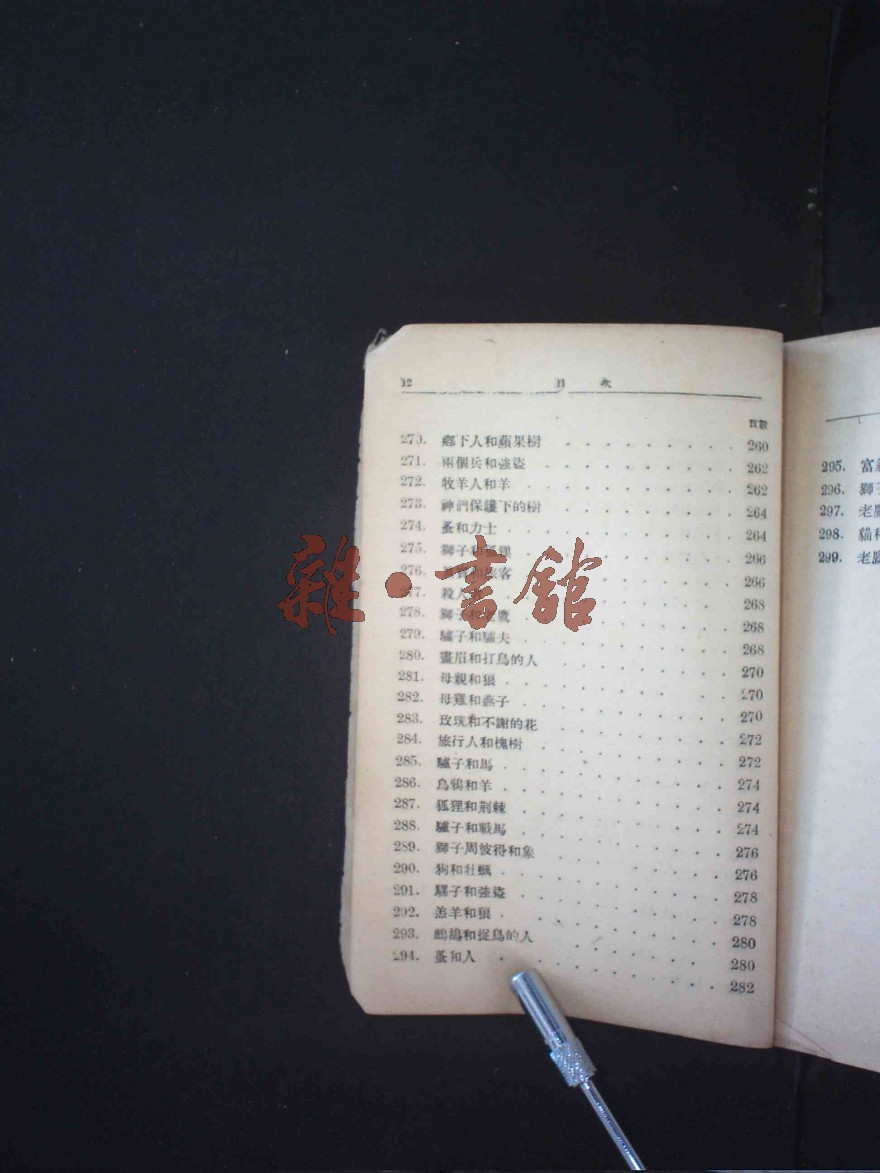 12 目 次
頁數
270. 鄉下人和蘋果樹 260
271. 兩個兵和強盜 262
272. 牧羊人和羊 262
273. 神們保護下的樹 264
274. 蚤和力士 264
275. 獅子和狐狸 266
276. 和旅客 266
277. 殺人 268
278. 獅子和老鷹 268
279. 驢子和驢夫 268
280. 畫眉和打鳥的人 270
281. 母親和狼 270
282. 母雞和燕子 270
283. 玫瑰和不謝的花 272
284. 旅行人和槐樹 272
285. 驢子和馬 274
286. 烏鴉和羊 274
287. 狐狸和荆棘 274
288. 驢子和戰馬 276
289. 獅子周彼得和象 276
290. 狗和牡蠣 278
291. 騾子和強盜 278
292. 羔羊和狼 280
293. 鷓鴣和捉鳥的人 280
294. 蚤和人 282
295. 富
296. 獅子
297. 老
298. 貓和
299. 老
雜·書館